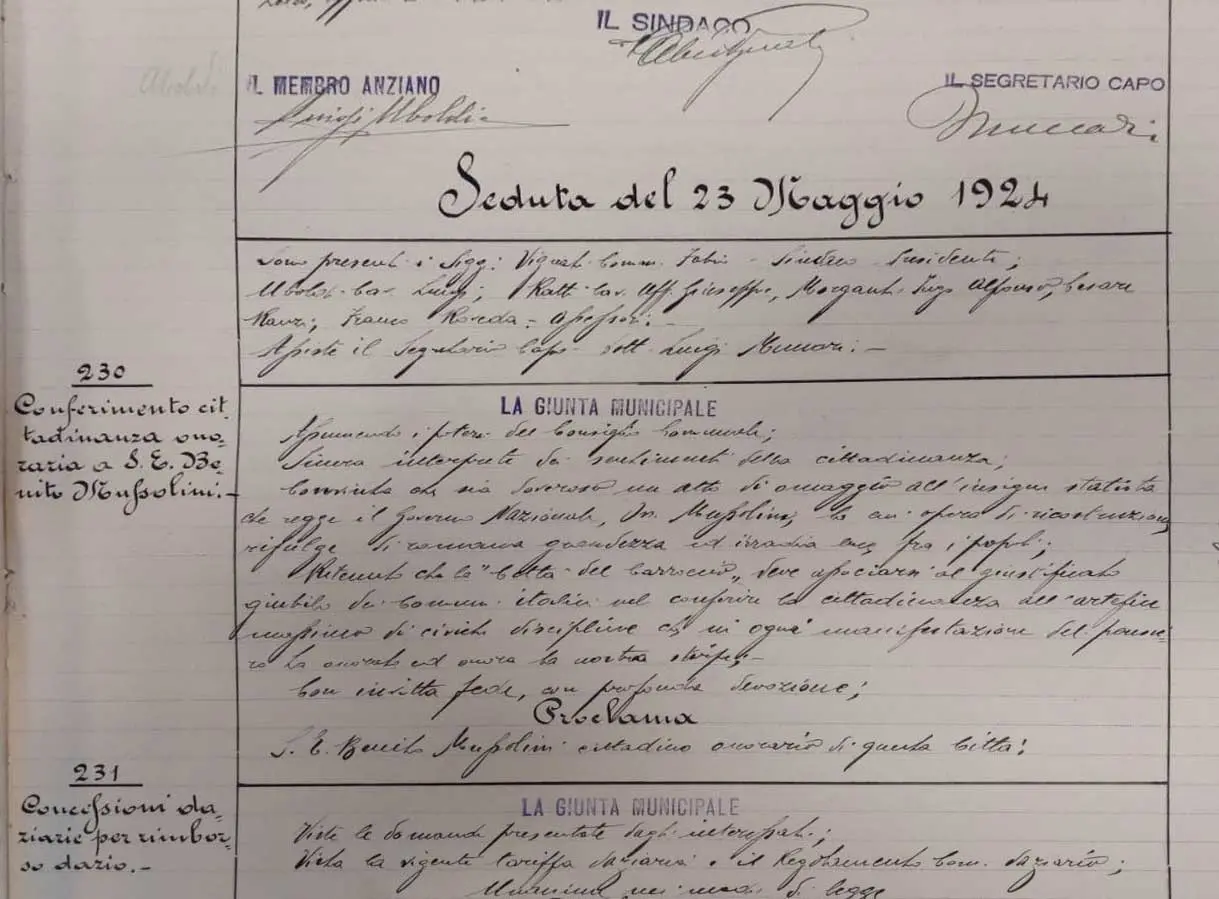 IL SINDACO
IL MEMBRO ANZIANO
IL SEGRETARIO CAPO
Luigi Uboldi
Munari
Seduta del 23 Maggio 1924
Sono presenti i Sigg: Vignati Comm. Fabio - Sindaco Presidente;
Uboldi Cav. Luigi; Ratti Cav. Uff. Giuseppe, Morganti Alfonso, Cesare
Franco Roveda - Assessori.
Assiste il Segretario Capo Dott. Luigi
230
Conferimento cit
tadinanza ono-
raria a S. E. Be
nito Mussolini.-
LA GIUNTA MUNICIPALE
Assumendo i poteri del Consiglio Comunale;
Sicura interprete dei sentimenti della cittadinanza;
Convinta che sia doveroso un atto di omaggio all'insigne statista
che regge il Governo Nazionale, On. Mussolini, la cui opera di ricostruzione
rifulge di romana grandezza ed irradia luce fra i popoli;
Ritenuto che la "Città del Carroccio" deve associarsi al giustificato
giubilo dei Comuni italici nel conferire la cittadinanza all'artefice
massimo di civiche discipline che in ogni manifestazione del pensie-
ro ha onorato ed onora la nostra stirpe;-
Con invitta fede, con profonda devozione;
Proclama
S. E. Benito Mussolini cittadino onorario di questa Città!
231
Concessioni da-
ziarie per rimbor-
so dazio.-
LA GIUNTA MUNICIPALE
Viste le domande presentate dagli interessati;
Vista la vigente tariffa daziaria e il Regolamento Com. daziario;
Unanime nei modi di legge